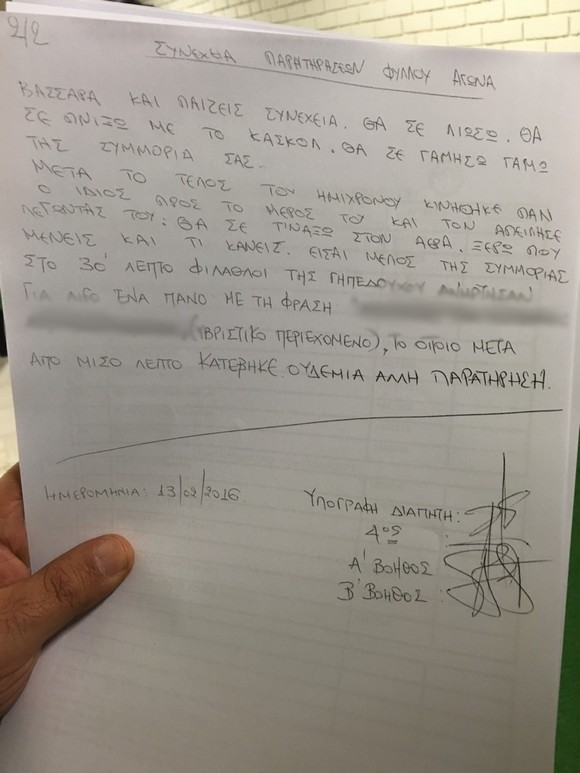 2/2
ΣΥΝΕΧΕΙΑ ΠΑΡΑΤΗΡΗΣΕΩΝ ΦΥΛΛΟΥ ΑΓΩΝΑ
ΒΑΣΣΑΡΑ ΚΑΙ ΠΑΙΖΕΙΣ ΣΥΝΕΧΕΙΑ. ΘΑ ΣΕ ΛΙΩΣΩ. ΘΑ
ΣΕ ΠΝΙΞΩ ΜΕ ΤΟ ΚΑΣΚΟΛ. ΘΑ ΣΕ ΓΑΜΗΣΩ ΓΑΜΩ
ΤΗΣ ΣΥΜΜΟΡΙΑ ΣΑΣ.
ΜΕΤΑ ΤΟ ΤΕΛΟΣ ΤΟΥ ΗΜΙΧΡΟΝΟΥ ΚΙΝΗΘΗΚΕ ΠΑΛΙ
Ο ΙΔΙΟΣ ΠΡΟΣ ΤΟ ΜΕΡΟΣ ΤΟΥ ΚΑΙ ΤΟΝ ΑΠΕΙΛΗΣΕ
ΛΕΓΟΝΤΑΣ ΤΟΥ: ΘΑ ΣΕ ΤΙΝΑΞΩ ΣΤΟΝ ΑΕΡΑ. ΞΕΡΩ ΠΟΥ
ΜΕΝΕΙΣ ΚΑΙ ΤΙ ΚΑΝΕΙΣ. ΕΙΣΑΙ ΜΕΛΟΣ ΤΗΣ ΣΥΜΜΟΡΙΑΣ
ΣΤΟ 30' ΛΕΠΤΟ ΦΙΛΑΘΛΟΙ ΤΗΣ ΓΗΠΕΔΟΥΧΟΥ ΑΝΗΡΤΗΣΑΝ
ΓΙΑ ΛΙΓΟ ΕΝΑ ΠΑΝΟ ΜΕ ΤΗ ΦΡΑΣΗ:
(ΥΒΡΙΣΤΙΚΟ ΠΕΡΙΕΧΟΜΕΝΟ), ΤΟ ΟΠΟΙΟ ΜΕΤΑ
ΑΠΟ ΜΙΣΟ ΛΕΠΤΟ ΚΑΤΕΒΗΚΕ. ΟΥΔΕΜΙΑ ΑΛΛΗ ΠΑΡΑΤΗΡΗΣΗ.
ΗΜΕΡΟΜΗΝΙΑ: 13/02/2016
ΥΠΟΓΡΑΦΗ ΔΙΑΙΤΗΤΗ:
4ος :
Α' ΒΟΗΘΟΣ
Β' ΒΟΗΘΟΣ :